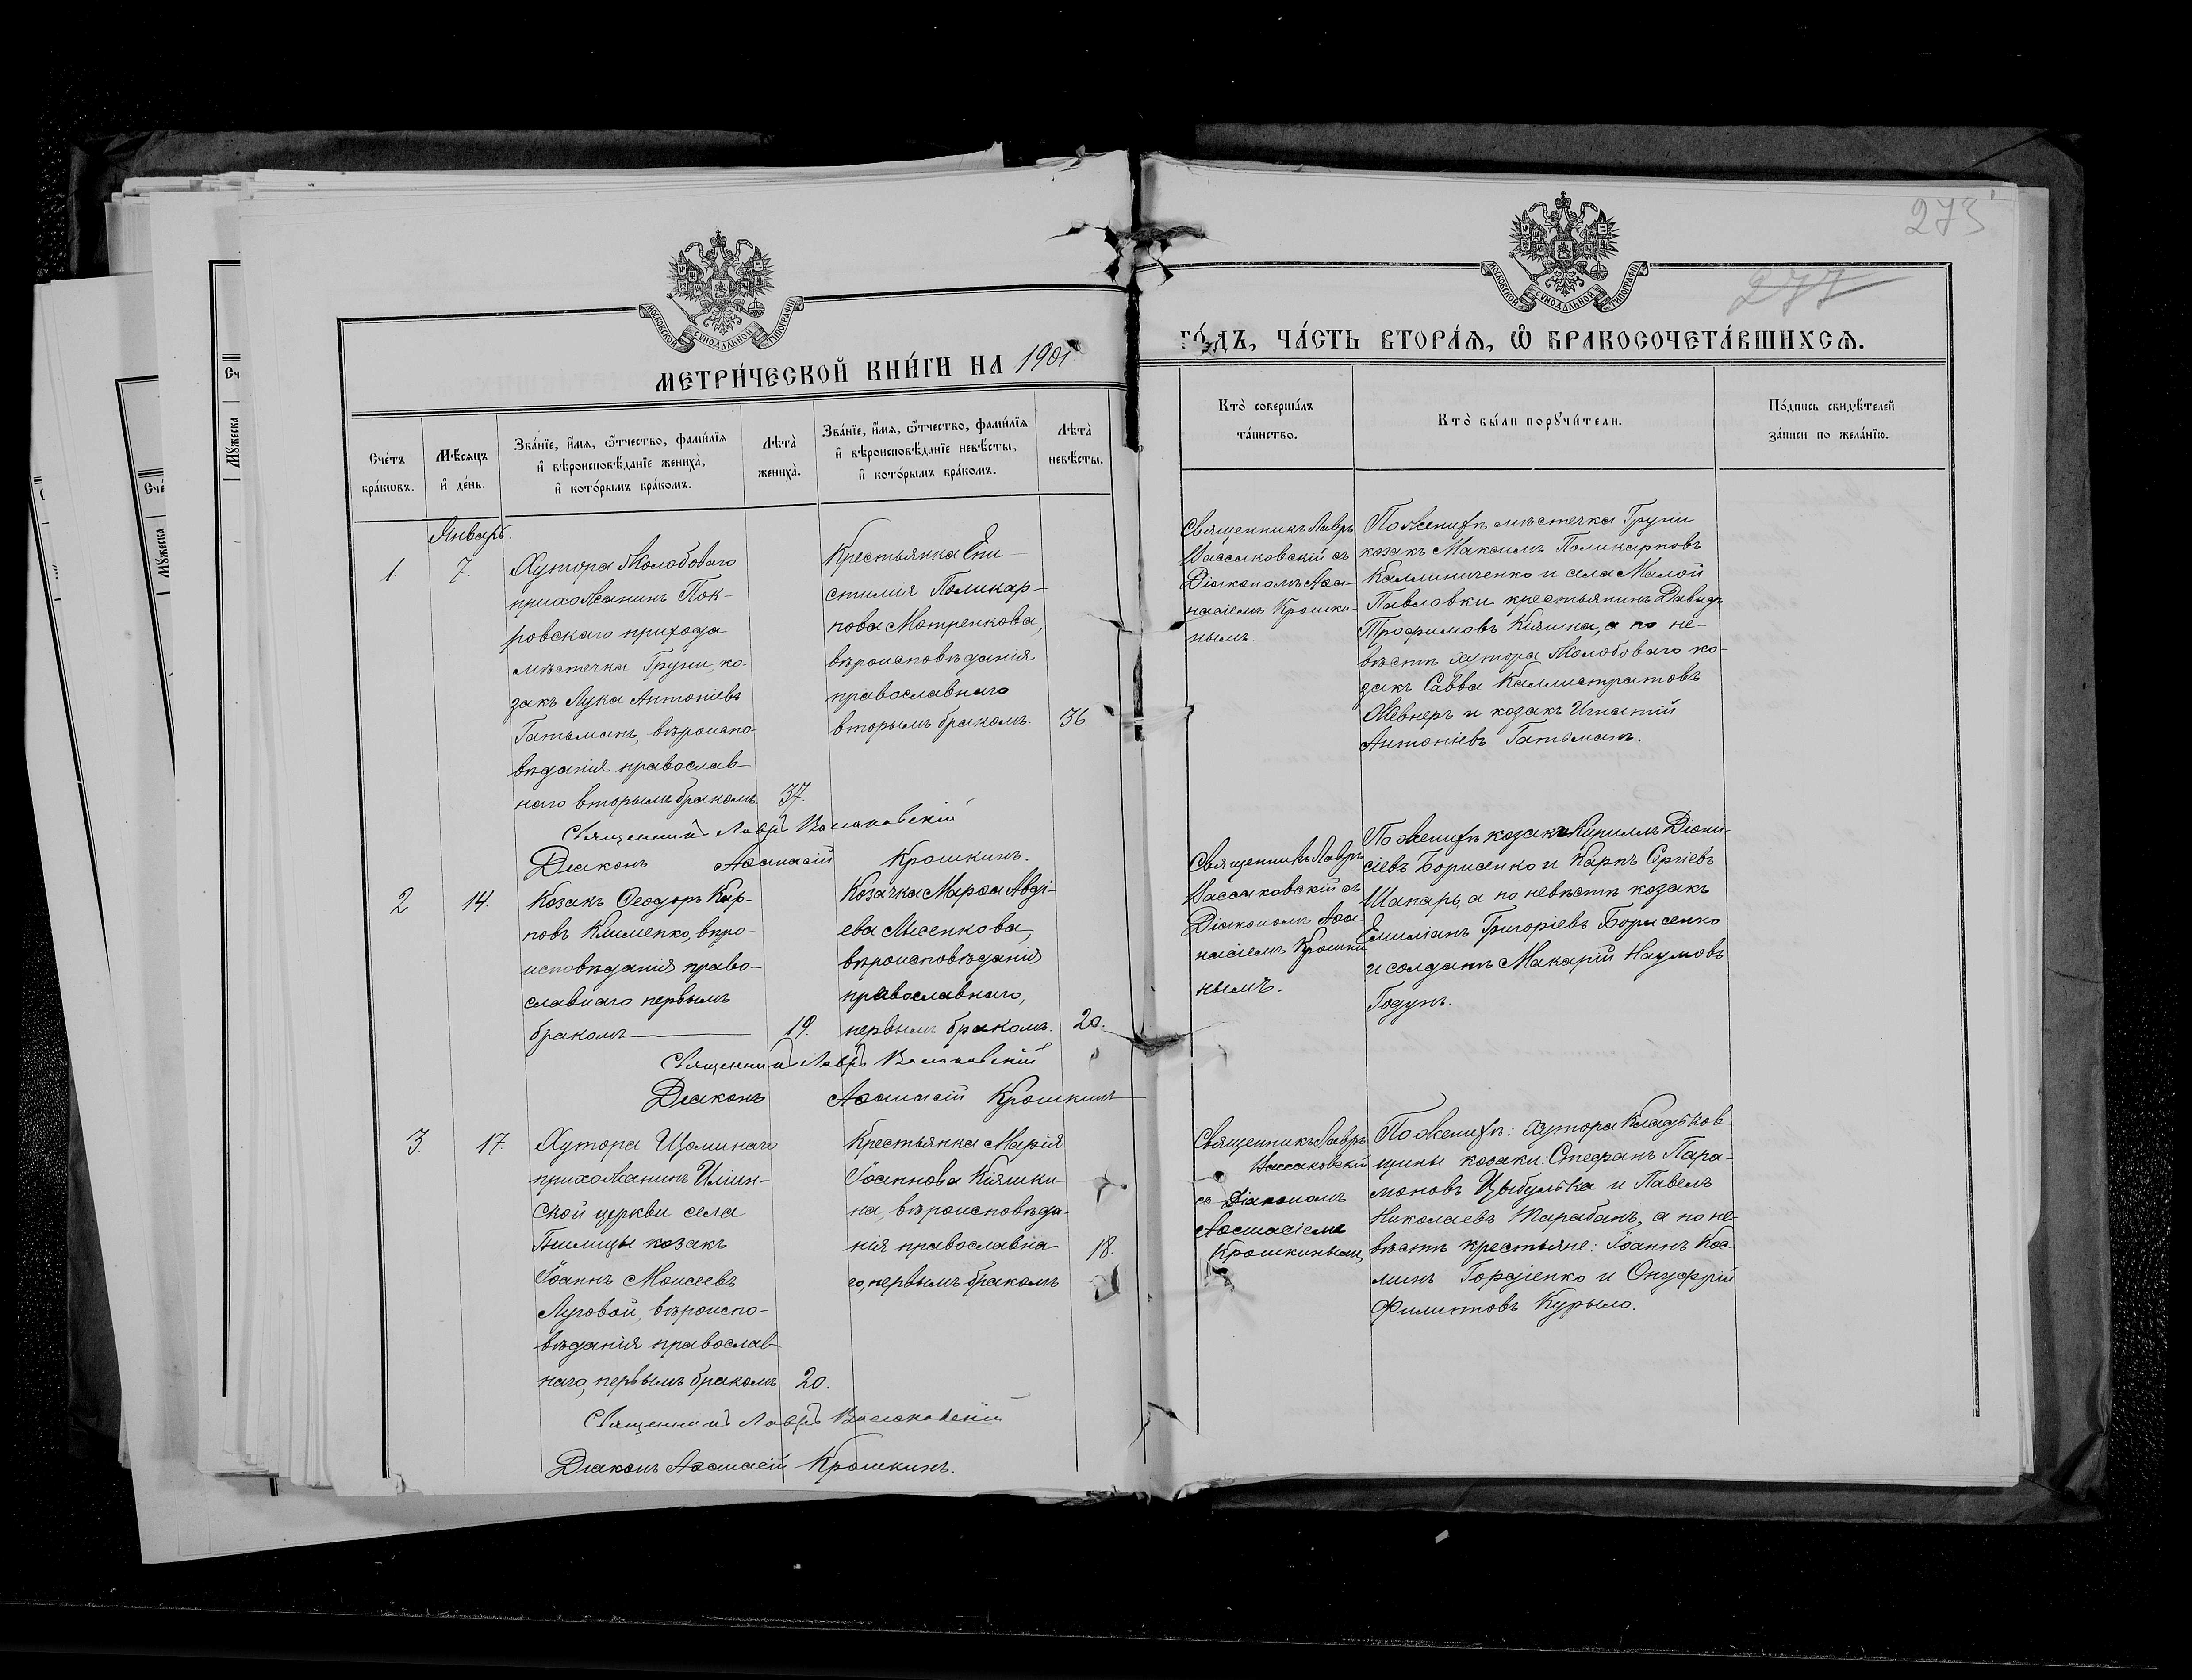 273
277
МОСКОВСКОЙ СѴНОДАЛЬНОЙ ТИПОГРАФІИ
МОСКОВСКОЙ СѴНОДАЛЬНОЙ ТИПОГРАФІИ
МЕТРИ́ЧЕСКОЙ КНИ́ГИ НА 1901
ГО́ДЪ, ЧА́СТЬ ВТОРА́Ѧ, Ѿ БРАКОСОЧЕТА́ВШИХСѦ.
Сче́тъ
бра́кѡвъ.
Мѣ́сяцъ
и҆ де́нь.
Зва́нїе, и҆́мѧ, ѻ҆́тчество, фами́лїѧ
и҆ вѣроисповѣ́данїе жениха̀,
и҆ кото́рымъ бра́комъ.
Лѣта̀
жениха̀.
Зва́нїе, и҆́мѧ, ѻ҆́тчество, фами́лїѧ
и҆ вѣроисповѣ́данїе невѣ́сты,
и҆ кото́рымъ бра́комъ.
Лѣта̀
невѣ́сты.
Кто̀ соверша́лъ
та́инство.
Кто̀ бы́ли порꙋчи́тели.
По́дпись свидѣ́телей
за́писи по жела́нїю.
Январь.
1.
7.
Хутора Молобоваго
прихожанинъ Пок-
ровскаго прихода
мѣстечка Груни, ко-
закъ Лука Антоніевъ
Гатьманъ, вѣроиспо-
вѣданія православ-
наго вторымъ бракомъ.
37.
Крестьянка Епи-
стимія Поликар-
пова Мотренкова,
вѣроисповѣданія
православнаго
вторымъ бракомъ.
36.
Священникъ Лавръ
Вассаковскій съ
Діакономъ Аѳа-
насіемъ Крошки-
нымъ.
По женихѣ мѣстечка Груни
козакъ Максимъ Поликарповъ
Каллиниченко и села Малой
Павловки крестьянинъ Давидъ
Трофимовъ Кіяшка, а по не-
вѣстѣ хутора Молобоваго ко-
закъ Савва Каллистратовъ
Жевнеръ и козакъ Игнатій
Антоніевъ Гатьманъ.
Священникъ Лавръ Вассаковскій
Діаконъ Аѳанасій Крошкинъ.
2
14.
Козакъ Ѳеодоръ Кар-
повъ Клименко, вѣро-
исповѣданія право-
славнаго первымъ
бракомъ
19.
Козачка Марѳа Авді-
ева Лысенкова,
вѣроисповѣданія
православнаго,
первымъ бракомъ.
20.
Священникъ Лавръ
Вассаковскій съ
Діакономъ Аѳа
насіемъ Крошки
нымъ.
По женихѣ козакъ Кириллъ Діони-
сіевъ Борисенко и Карпъ Сергіевъ
Шапарь, а по невѣстѣ козакъ
Емиліанъ Григоріевъ Борисенко
и солдатъ Макарій Наумовъ
Годунъ.
Священникъ Лавръ Вассаковскій
Діаконъ Аѳанасій Крошкинъ
3.
17.
Хутора Щоминаго
прихожанинъ Иліин-
ской церкви села
Гнилицы козакъ
Іоаннъ Моисеевъ
Луговой, вѣроиспо-
вѣданія православ-
наго, первымъ бракомъ
20.
Крестьянка Марія
Іоаннова Кіяшки-
на, вѣроисповѣда-
нія православна
го, первымъ бракомъ
18.
Священникъ Лавръ
Вассаковскій
съ Діакономъ
Аѳанасіемъ
Крошкинымъ
По женихѣ: хутора Кладьков
щины козаки: Стефанъ Пара-
моновъ Цыбулька и Павелъ
Николаевъ Тарабанъ, а по не-
вѣстѣ крестьяне: Іоаннъ Кос-
минъ Гордіенко и Онуфрій
Филиповъ Курыло.
Священникъ Лавръ Вассаковскій
Діаконъ Аѳанасій Крошкинъ.